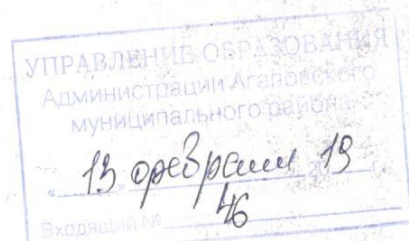 УПРАВЛЕНИЕ ОБРАЗОВАНИЯ
Администрации Агаповского
муниципального района
« 13 » февраля 2019 г.
Входящий № 46